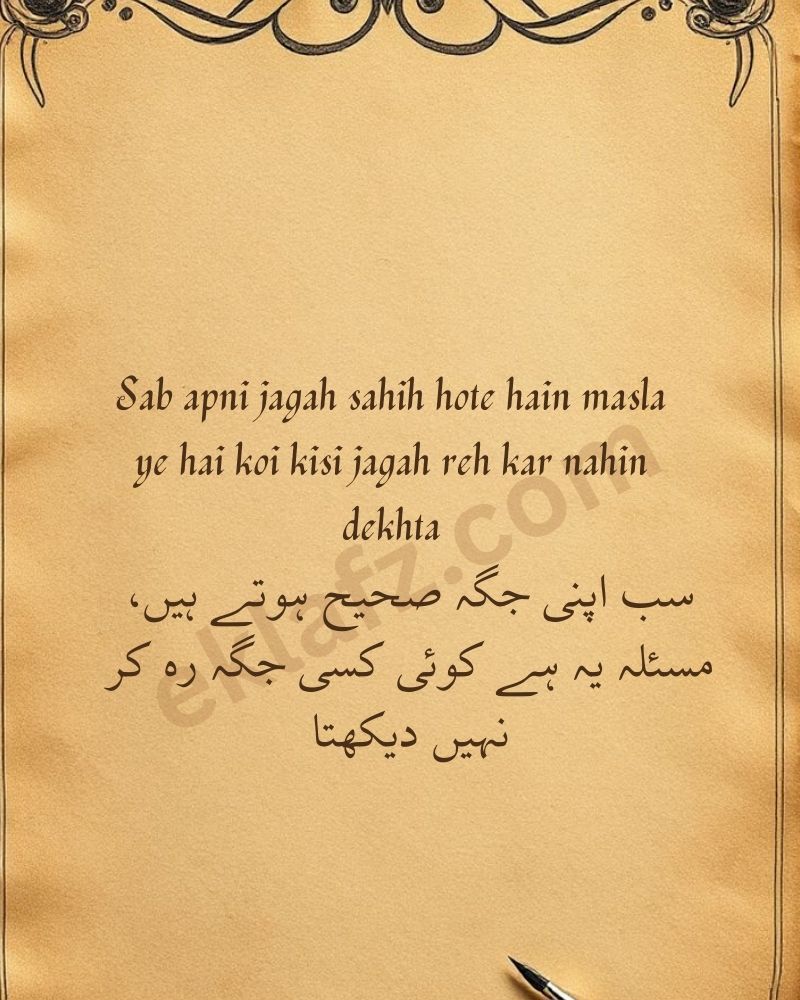 Sab apni jagah sahih hote hain masla
ye hai koi kisi jagah reh kar nahin
dekhta
سب اپنی جگہ صحیح ہوتے ہیں،
مسئلہ یہ ہے کوئی کسی جگہ رہ کر
نہیں دیکھتا
eklafz.com